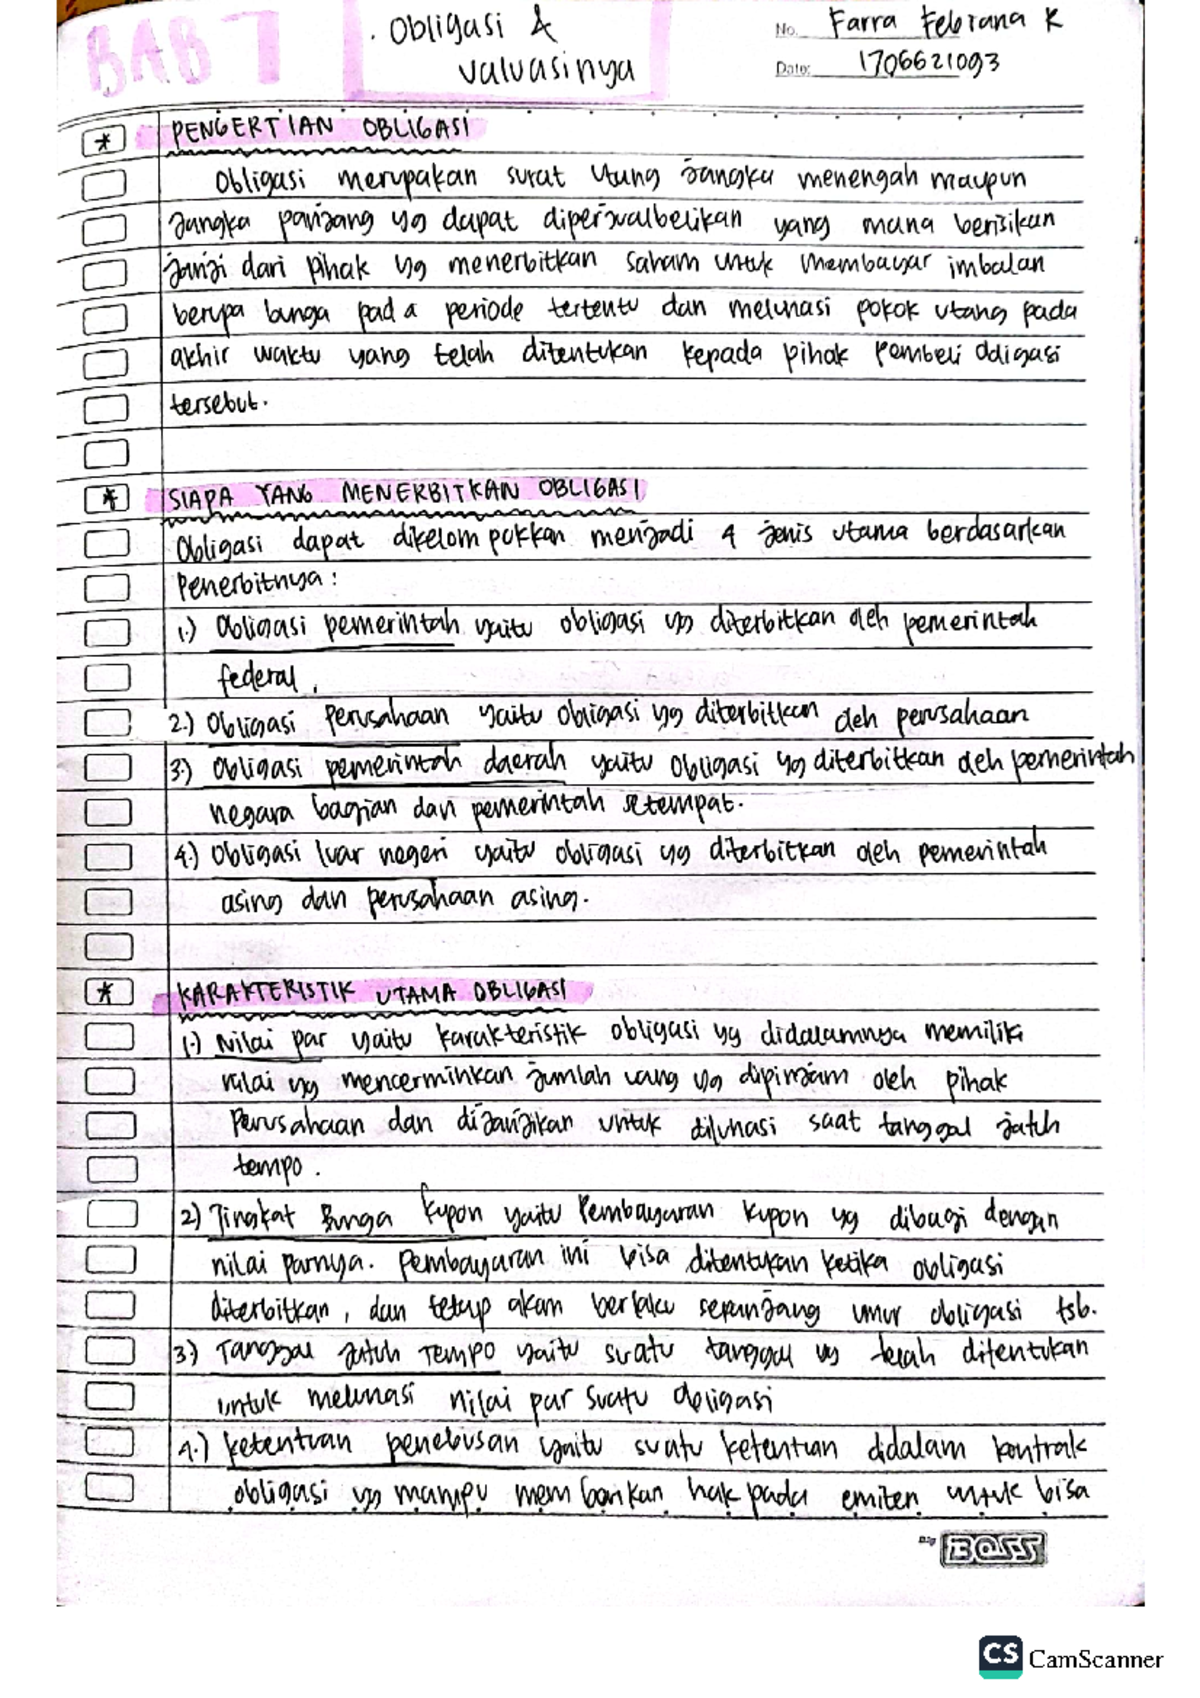 BAB 7
. Obligasi &
valuasinya
No. Farra Febriana K
Date: 1706621093
* PENGERTIAN OBLIGASI
Obligasi merupakan surat utang jangka menengah maupun
jangka panjang yg dapat diperjualbelikan yang mana berisikan
janji dari pihak yg menerbitkan saham untuk membayar imbalan
berupa bunga pada periode tertentu dan melunasi pokok utang pada
akhir waktu yang telah ditentukan kepada pihak pembeli obligasi
tersebut.
* SIAPA YANG MENERBITKAN OBLIGASI
Obligasi dapat dikelompokkan menjadi 4 jenis utama berdasarkan
Penerbitnya :
1.) Obligasi pemerintah yaitu obligasi yg diterbitkan oleh pemerintah
federal.
2.) Obligasi perusahaan yaitu obligasi yg diterbitkan oleh perusahaan
3.) Obligasi pemerintah daerah yaitu obligasi yg diterbitkan oleh pemerintah
negara bagian dari pemerintah setempat.
4.) Obligasi luar negeri yaitu obligasi yg diterbitkan oleh pemerintah
asing dan perusahaan asing.
* KARAKTERISTIK UTAMA OBLIGASI
1.) Nilai par yaitu karakteristik obligasi yg didalamnya memiliki
nilai yg mencerminkan jumlah uang yg dipinjam oleh pihak
Perusahaan dan dijanjikan untuk dilunasi saat tanggal jatuh
tempo.
2) Tingkat Bunga kupon yaitu Pembayaran kupon yg dibagi dengan
nilai parnya. Pembayaran ini bisa ditentukan ketika obligasi
diterbitkan, dan tetap akan berlaku sepanjang umur obligasi tsb.
3.) Tanggal Jatuh Tempo yaitu suatu tanggal yg telah ditentukan
untuk melunasi nilai par suatu obligasi
4.) ketentuan penebusan yaitu suatu ketentuan didalam kontrak
obligasi yg mampu memberikan hak pada emiten untuk bisa
BOSS
CS CamScanner